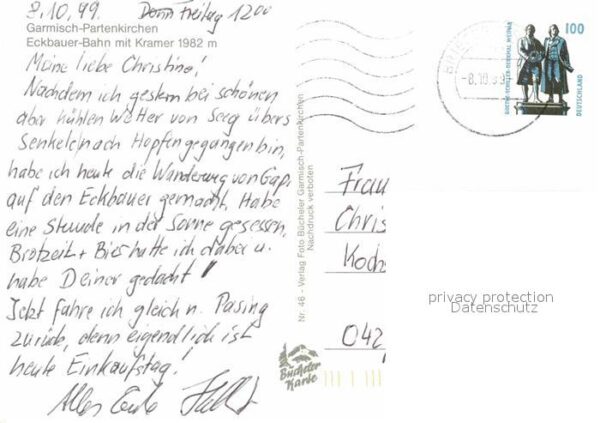 8.10.99. Freitag 1200
Garmisch-Partenkirchen
Eckbauer-Bahn mit Kramer 1982 m
Meine liebe Christine!
Nachdem ich gestern bei schönen
aber kühlen Wetter von Seeg übers
Senkele nach Hopfen gegangen bin,
habe ich heute die Wanderung von Gap.
auf den Eckbauer gemacht. Habe
eine Stunde in der Sonne gesessen,
Brotzeit + Bier hatte ich dabei u.
habe Deiner gedacht!
Jetzt fahre ich gleich n. Pasing
zurück, denn eigendlich ist
heute Einkaufstag!
Alles Liebe
Nr. 46 - Verlag Foto Bücheler Garmisch-Partenkirchen
Nachdruck verboten
Bücheler
Karte
-8.10.99
100
GOETHE-SCHILLER-DENKMAL WEIMAR
DEUTSCHLAND
Frau
Chris
Koch
042
privacy protection
Datenschutz